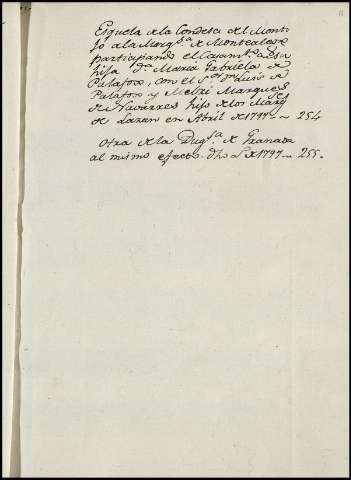 Esquela de la Condesa del Monti
jo a la Marq.sa de Montealegre
participando el Casam.to de su
hija d.a Maria Gabriela de
Palafox, con el S.or Luis de
Palafox y Melzi Marques
de Navarres hijo de los Marq.ses
de Lazan en Abril de 1797 ~ 254
Otra de la Duq.sa de Granada
al mismo efecto. dho de 1797 ~ 255.